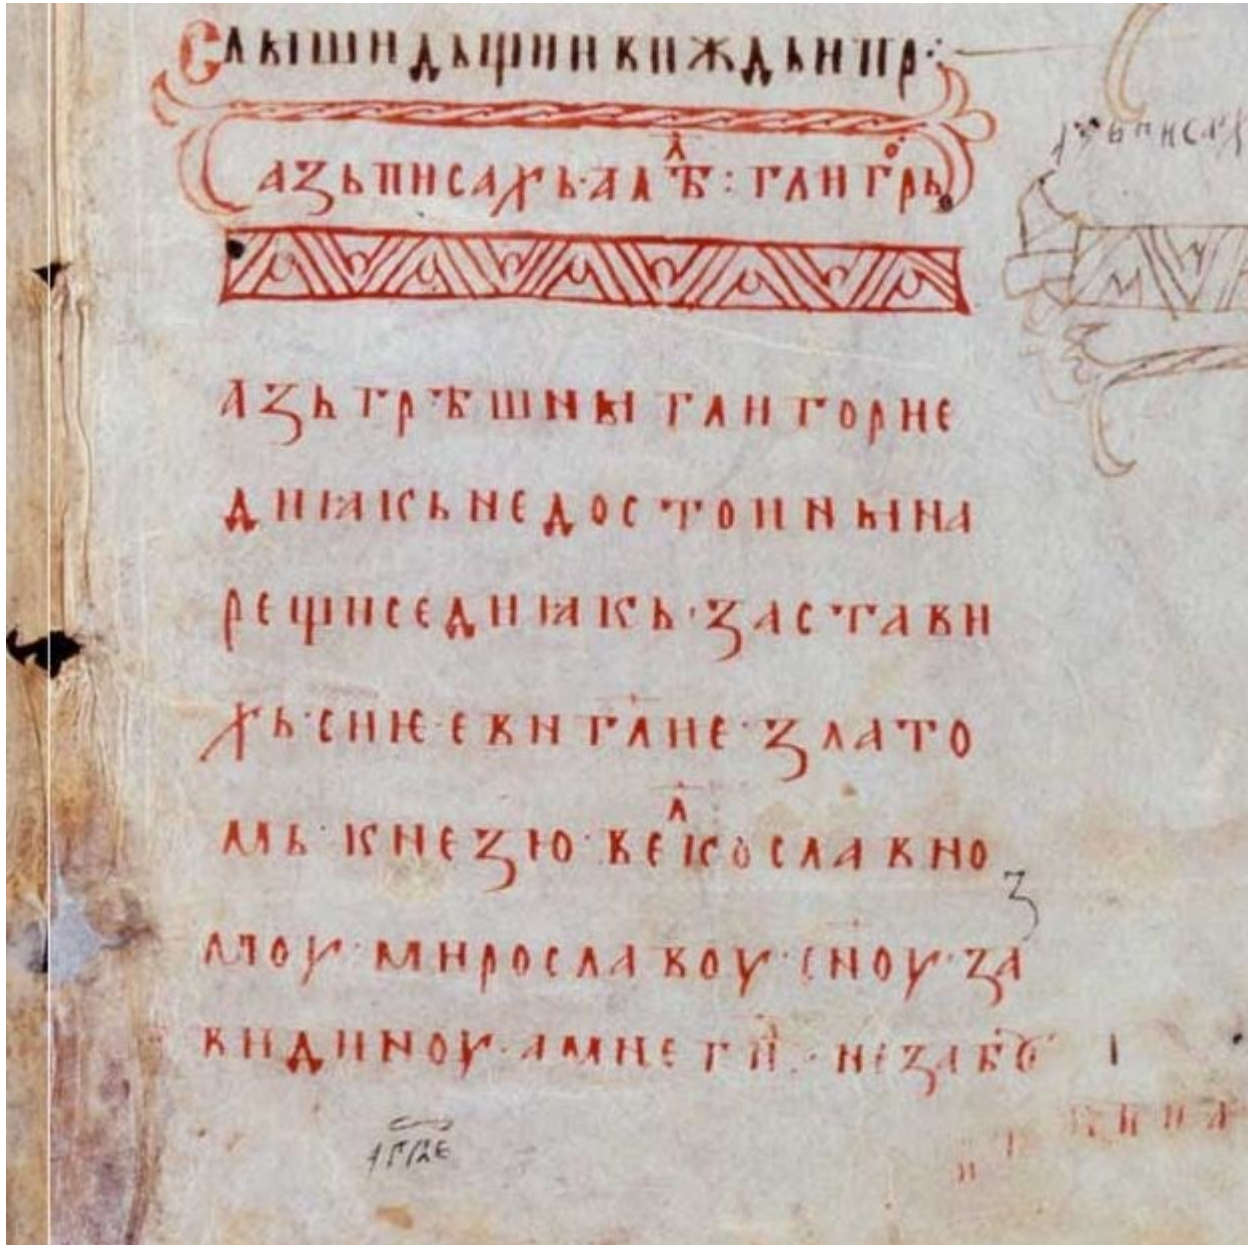 Слꙑши дьщи и виждь и пр҄
азь писахь алѣ : глигⷪ҇рь
азь грѣшнꙑ глигорие
диꙗкь недостоинꙑ на
рещи се диꙗкь · застави
хь · сиѥ · евнгл҃ие · злато
мь · кнезю · веⷧ҇кославно
моу · мирославоу · сн҃оу · за
видиноу · а мне ги҃ · не заб
азьписах